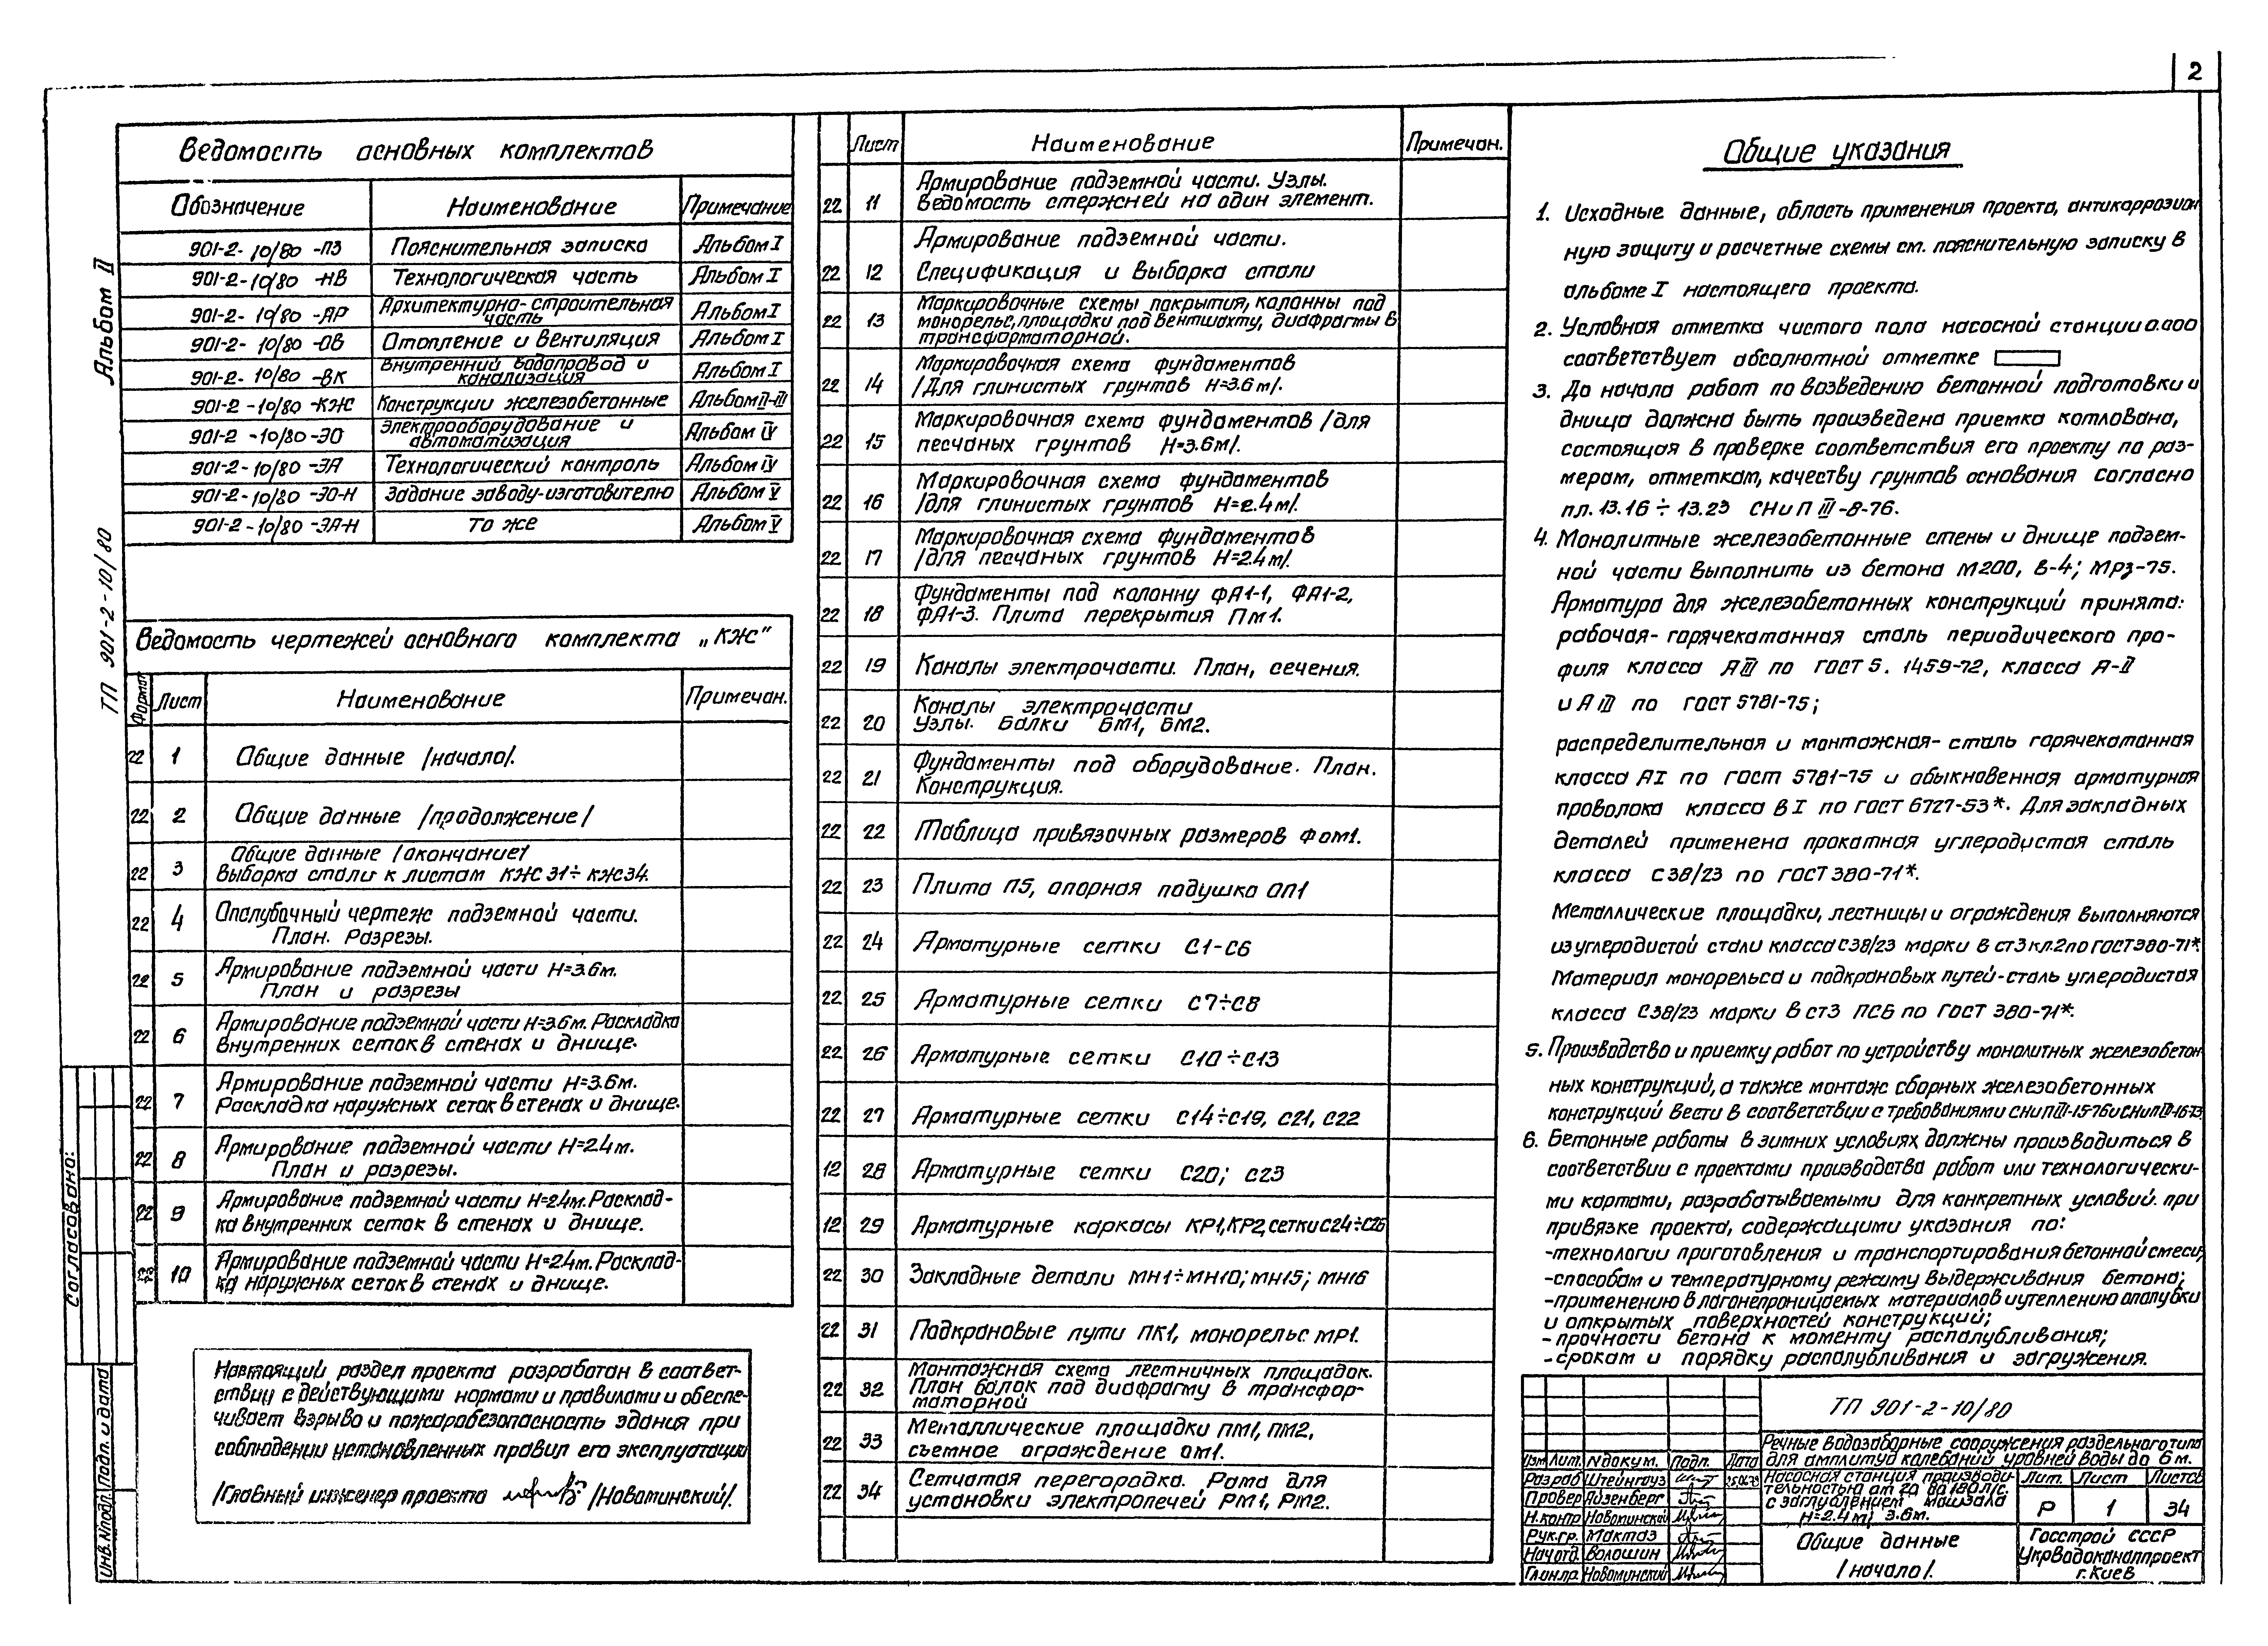 2
Альбом II
ТП 901-2-10/80
Ведомость основных комплектов
Обозначение Наименование Примечание
901-2-10/80-ПЗ Пояснительная записка Альбом I
901-2-10/80-НВ Технологическая часть Альбом I
901-2-10/80-АР Архитектурно-строительная часть Альбом I
901-2-10/80-ОВ Отопление и вентиляция Альбом I
901-2-10/80-ВК Внутренний водопровод и канализация Альбом I
901-2-10/80-КЖ Конструкции железобетонные Альбом II-III
901-2-10/80-ЭО Электрооборудование и автоматизация Альбом IV
901-2-10/80-ЭА Технологический контроль Альбом IV
901-2-10/80-ЭО-Н Задание заводу-изготовителю Альбом V
901-2-10/80-ЭА-Н то же Альбом V
Ведомость чертежей основного комплекта „КЖ"
Формат Лист Наименование Примечан.
22 1 Общие данные /начало/.
22 2 Общие данные /продолжение/
22 3 Общие данные /окончание/
Выборка стали к листам КЖ31÷КЖ34.
22 4 Опалубочный чертеж подземной части.
План. Разрезы.
22 5 Армирование подземной части Н=3.6м.
План и разрезы
22 6 Армирование подземной части Н=3.6м. Раскладка
внутренних сеток в стенах и днище.
22 7 Армирование подземной части Н=3.6м.
Раскладка наружных сеток в стенах и днище.
22 8 Армирование подземной части Н=2.4м.
План и разрезы.
22 9 Армирование подземной части Н=2.4м. Расклад-
ка внутренних сеток в стенах и днище.
22 10 Армирование подземной части Н=2.4м. Расклад-
ка наружных сеток в стенах и днище.
Настоящий раздел проекта разработан в соответ-
ствии с действующими нормами и правилами и обеспе-
чивает взрыво и пожаробезопасность здания при
соблюдении установленных правил его эксплуатации
/Главный инженер проекта /Новоминский/.
Согласовано:
Подп. и дата
Инв. №подл.
Лист Наименование Примечан.
22 11 Армирование подземной части. Узлы.
Ведомость стержней на один элемент.
22 12 Армирование подземной части.
Спецификация и выборка стали
22 13 Маркировочные схемы покрытия, колонны под
монорельс, площадки под вентшахту, диафрагмы в
трансформаторной.
22 14 Маркировочная схема фундаментов
/Для глинистых грунтов Н=3.6м/.
22 15 Маркировочная схема фундаментов /для
песчаных грунтов Н=3.6м/.
22 16 Маркировочная схема фундаментов
/для глинистых грунтов Н=2.4м/.
22 17 Маркировочная схема фундаментов
/для песчаных грунтов Н=2.4м/.
22 18 Фундаменты под колонну ФА1-1, ФА1-2,
ФА1-3. Плита перекрытия Пм1.
22 19 Каналы электрочасти. План, сечения.
22 20 Каналы электрочасти
Узлы. Балки БМ1, БМ2.
22 21 Фундаменты под оборудование. План.
Конструкция.
22 22 Таблица привязочных размеров Фом1.
22 23 Плита П5, опорная подушка ОП1
22 24 Арматурные сетки С1-С6
22 25 Арматурные сетки С7÷С8
22 26 Арматурные сетки С10÷С13
22 27 Арматурные сетки С14÷С19, С21, С22
12 28 Арматурные сетки С20; С23
12 29 Арматурные каркасы КР1, КР2, сетки С24÷С26
22 30 Закладные детали МН1÷МН10; МН15; МН16
22 31 Подкрановые пути ПК1, монорельс МР1.
22 32 Монтажная схема лестничных площадок.
План балок под диафрагму в трансфор-
маторной
22 33 Металлические площадки ПМ1, ПМ2,
съемное ограждение ОМ1.
22 34 Сетчатая перегородка. Рама для
установки электропечей РМ1, РМ2.
Общие указания
1. Исходные данные, область применения проекта, антикоррозион
ную защиту и расчетные схемы см. пояснительную записку в
альбоме I настоящего проекта.
2. Условная отметка чистого пола насосной станции 0.000
соответствует абсолютной отметке
3. До начала работ по возведению бетонной подготовки и
днища должна быть произведена приемка котлована,
состоящая в проверке соответствия его проекту по раз-
мерам, отметкам, качеству грунтов основания согласно
пп. 13.16 ÷ 13.23 СНиП III-8-76.
4. Монолитные железобетонные стены и днище подзем-
ной части выполнить из бетона М200, В-4; Мрз-75.
Арматура для железобетонных конструкций принята:
рабочая-горячекатанная сталь периодического про-
филя класса АIII по ГОСТ 5.1459-72, класса А-II
и АIII по ГОСТ 5781-75;
распределительная и монтажная-сталь горячекатанная
класса АI по ГОСТ 5781-75 и обыкновенная арматурная
проволока класса ВI по ГОСТ 6727-53*. Для закладных
деталей применена прокатная углеродистая сталь
класса С38/23 по ГОСТ 380-71*.
Металлические площадки, лестницы и ограждения выполняются
из углеродистой стали класса С38/23 марки В ст3 кл.2 по ГОСТ 380-71*.
Материал монорельса и подкрановых путей-сталь углеродистая
класса С38/23 марки В ст3 пс6 по ГОСТ 380-71*.
5. Производство и приемку работ по устройству монолитных железобетон-
ных конструкций, а также монтаж сборных железобетонных
конструкций вести в соответствии с требованиями СНиП III-15-76 и СНиП III-16-73
6. Бетонные работы в зимних условиях должны производиться в
соответствии с проектами производства работ или технологически-
ми картами, разрабатываемыми для конкретных условий при
привязке проекта, содержащими указания по:
-технологии приготовления и транспортирования бетонной смеси;
-способам и температурному режиму выдерживания бетона;
-применению влагонепроницаемых материалов и утеплению опалубки
и открытых поверхностей конструкций;
-прочности бетона к моменту распалубливания;
-срокам и порядку распалубливания и загружения.
ТП 901-2-10/80
Речные водозаборные сооружения раздельного типа
для амплитуд колебаний уровней воды до 6м.
Изм Лит. №докум. Подп. Дата
Разраб Штейнгауз
Провер Айзенберг
Н.контр Новоминский
Рук.гр. Мактаз
Нач отд. Волошин
Гл.ин.пр. Новоминский
Насосная станция производи-
тельностью от 20 до 180л/с.
с заглублением машзала
Н=2.4м; 3.6м.
Лит. Лист Листов
Р 1 34
Общие данные
/начало/.
Госстрой СССР
Укрводоканалпроект
г.Киев